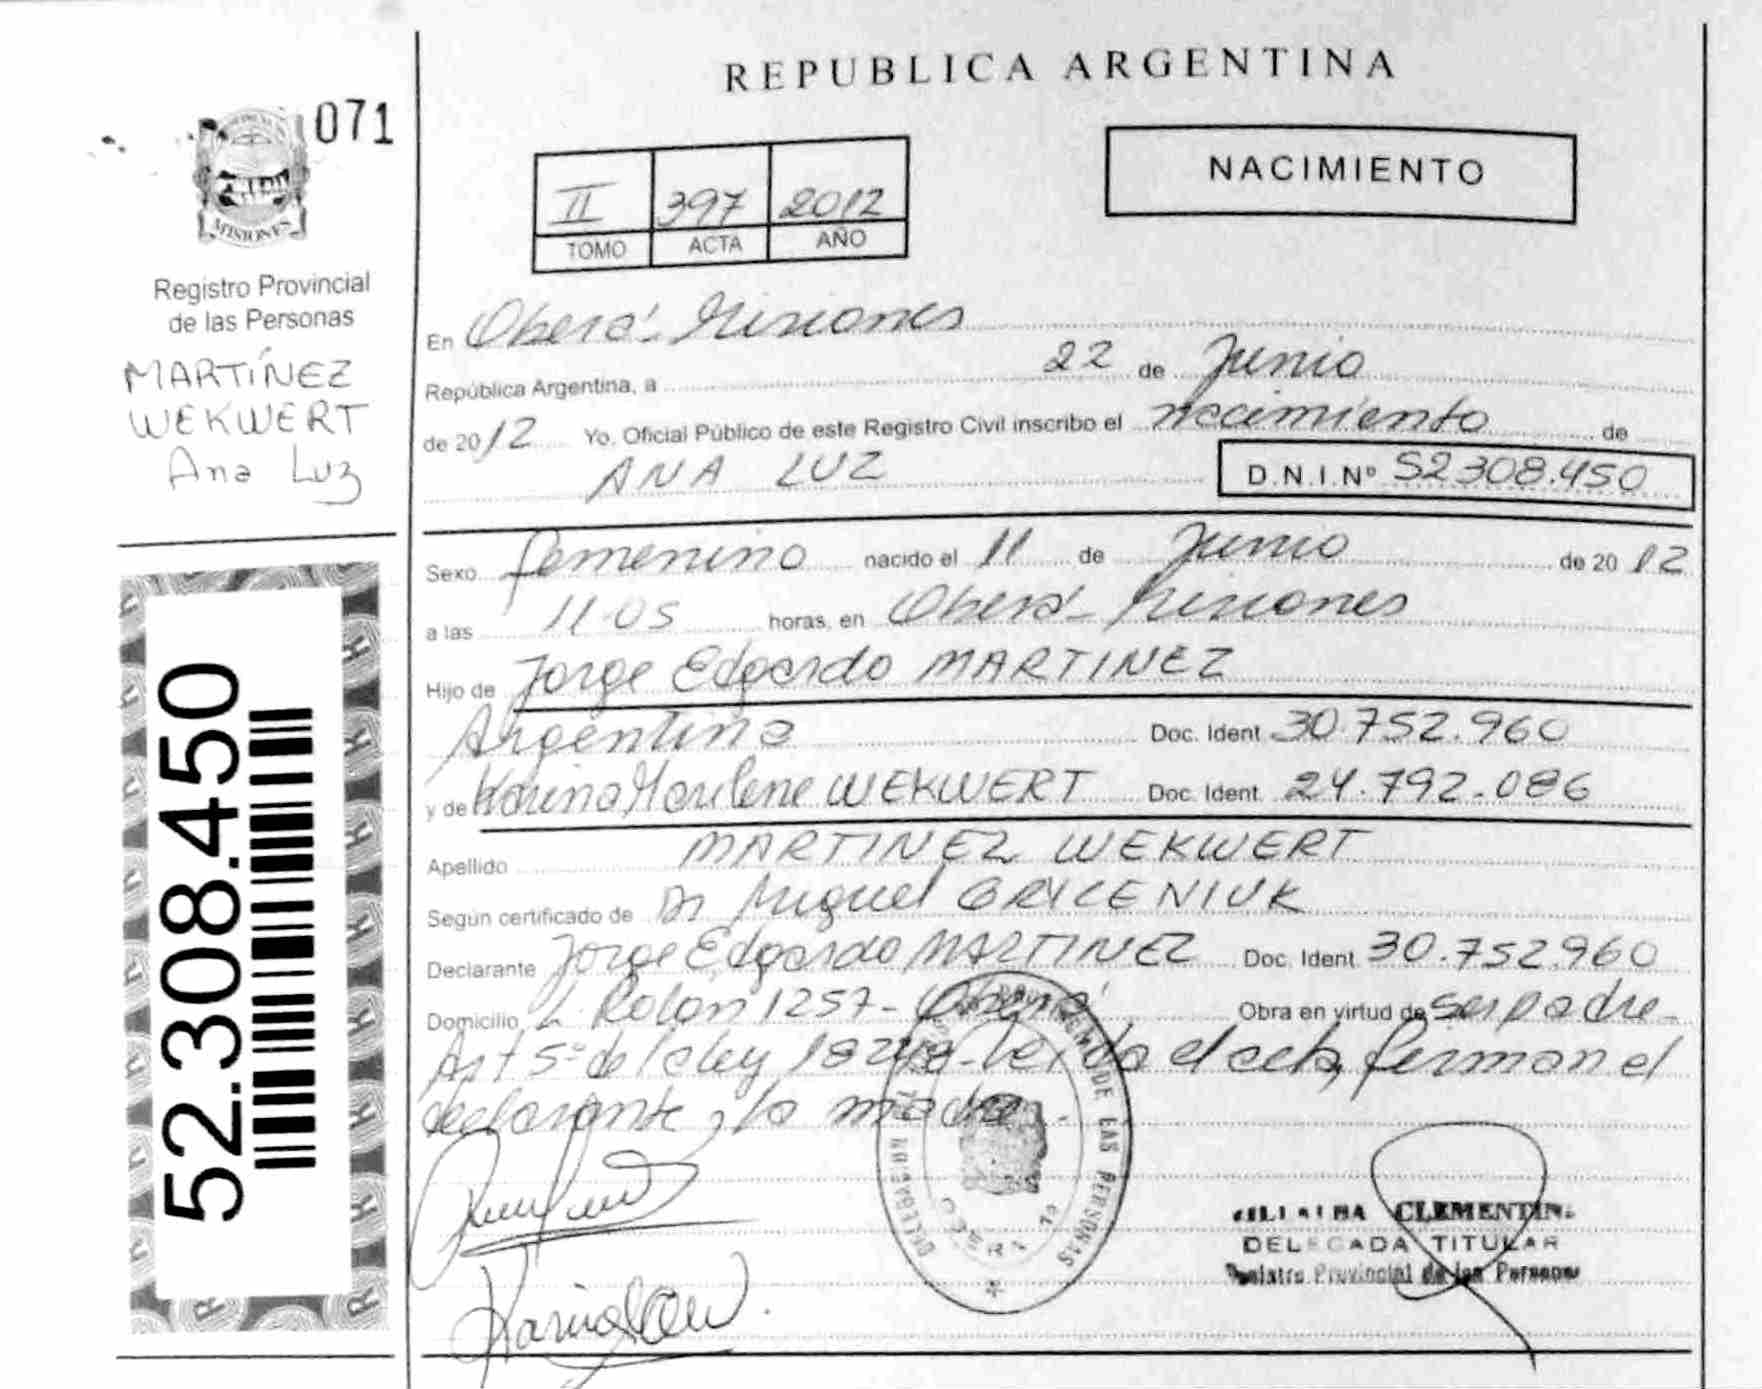 REPUBLICA ARGENTINA
071
MISIONES
Registro Provincial
de las Personas
MARTÍNEZ
WEKWERT
Ana Luz
52.308.450
II 397 2012
TOMO ACTA AÑO
NACIMIENTO
En Oberá - Misiones
República Argentina, a 22 de Junio
de 2012 Yo, Oficial Público de este Registro Civil inscribo el nacimiento de
ANA LUZ D.N.I.Nº 52308.450
Sexo femenino nacido el 11 de Junio de 2012
a las 11.05 horas, en Oberá - Misiones
Hijo de Jorge Edgardo MARTINEZ
Argentina Doc. Ident. 30.752.960
y de Karina Marilene WEKWERT Doc. Ident. 24.792.086
Apellido MARTINEZ WEKWERT
Según certificado de Dr Miguel GRICENIUK
Declarante Jorge Edgardo MARTINEZ Doc. Ident. 30.752.960
Domicilio L. Rolon 1257 - Oberá Obra en virtud de ser padre -
Art 5º de la ley 18248 - Leída el acta, firman el
declarante y la madre -
DE LAS PERSONAS
CLEMENTIN
DELEGADA TITULAR
Registro Provincial de las Personas